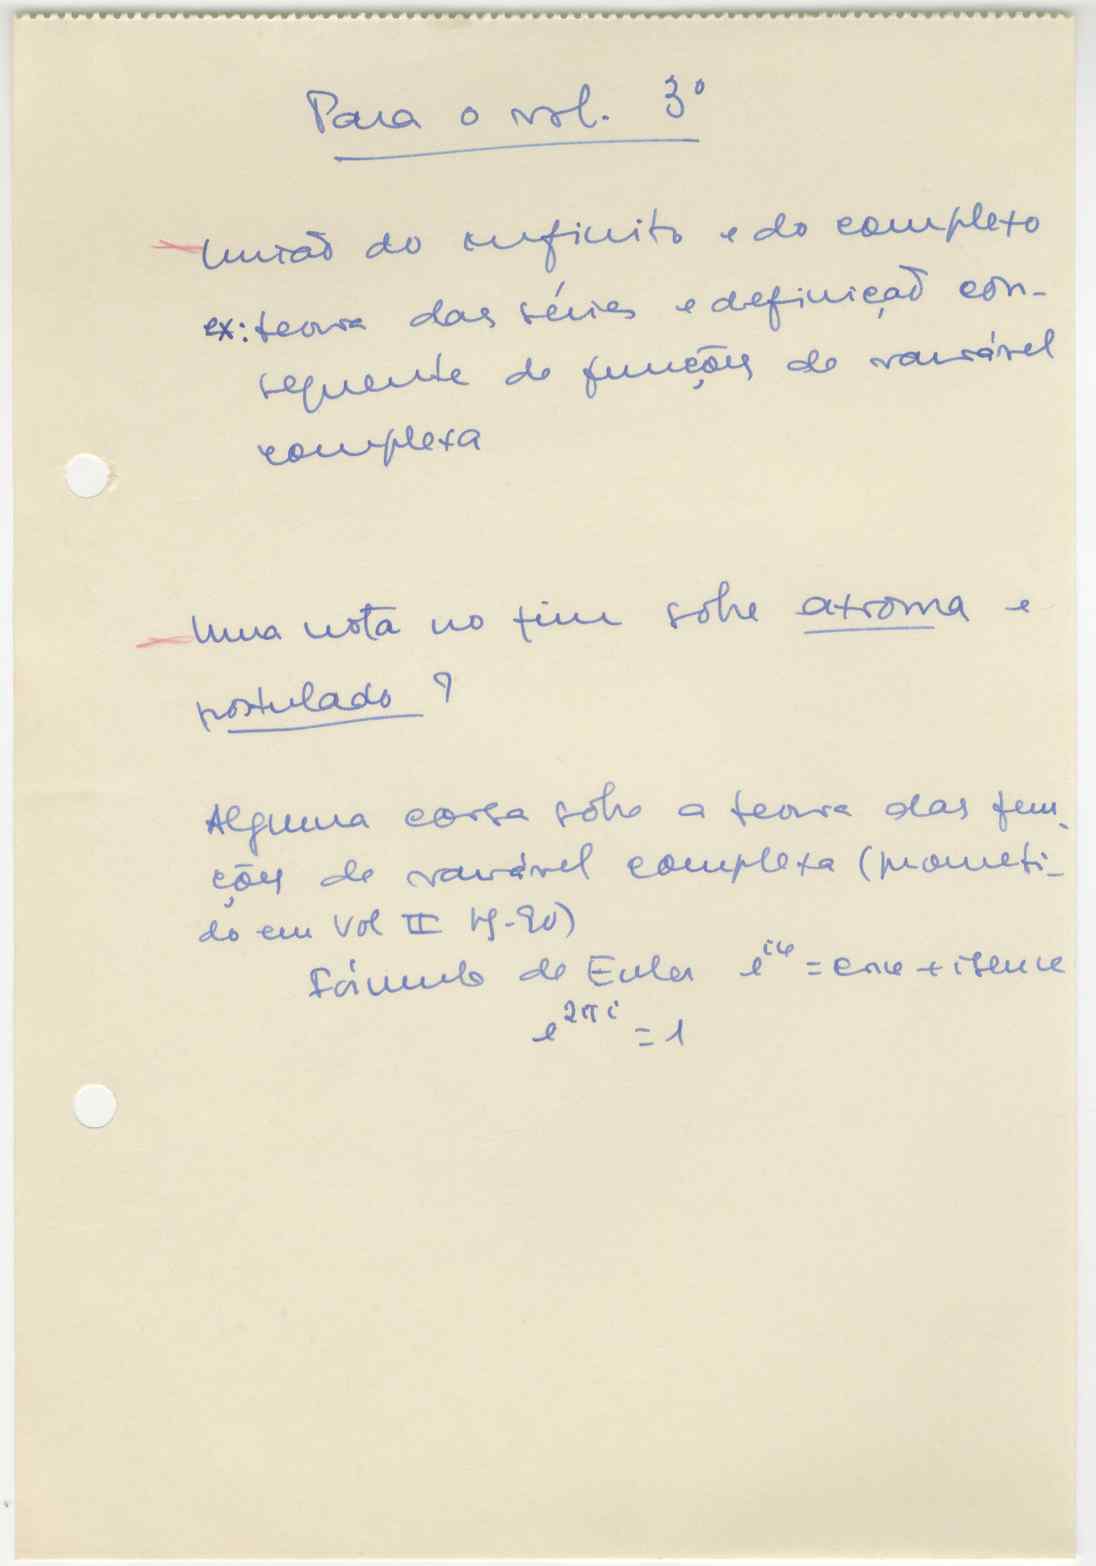 Para o vol. 3º
União do infinito e do complexo
ex: teoria das séries e definição con-
sequente de funções de variável
complexa
Uma nota no fim sobre axioma e
postulado ?
Alguma coisa sobre a teoria das fun-
ções de variável complexa (prometi-
do em Vol II
Fórmula de Euler e^{iu} = cos u + i sen u
e^{2πi} = 1